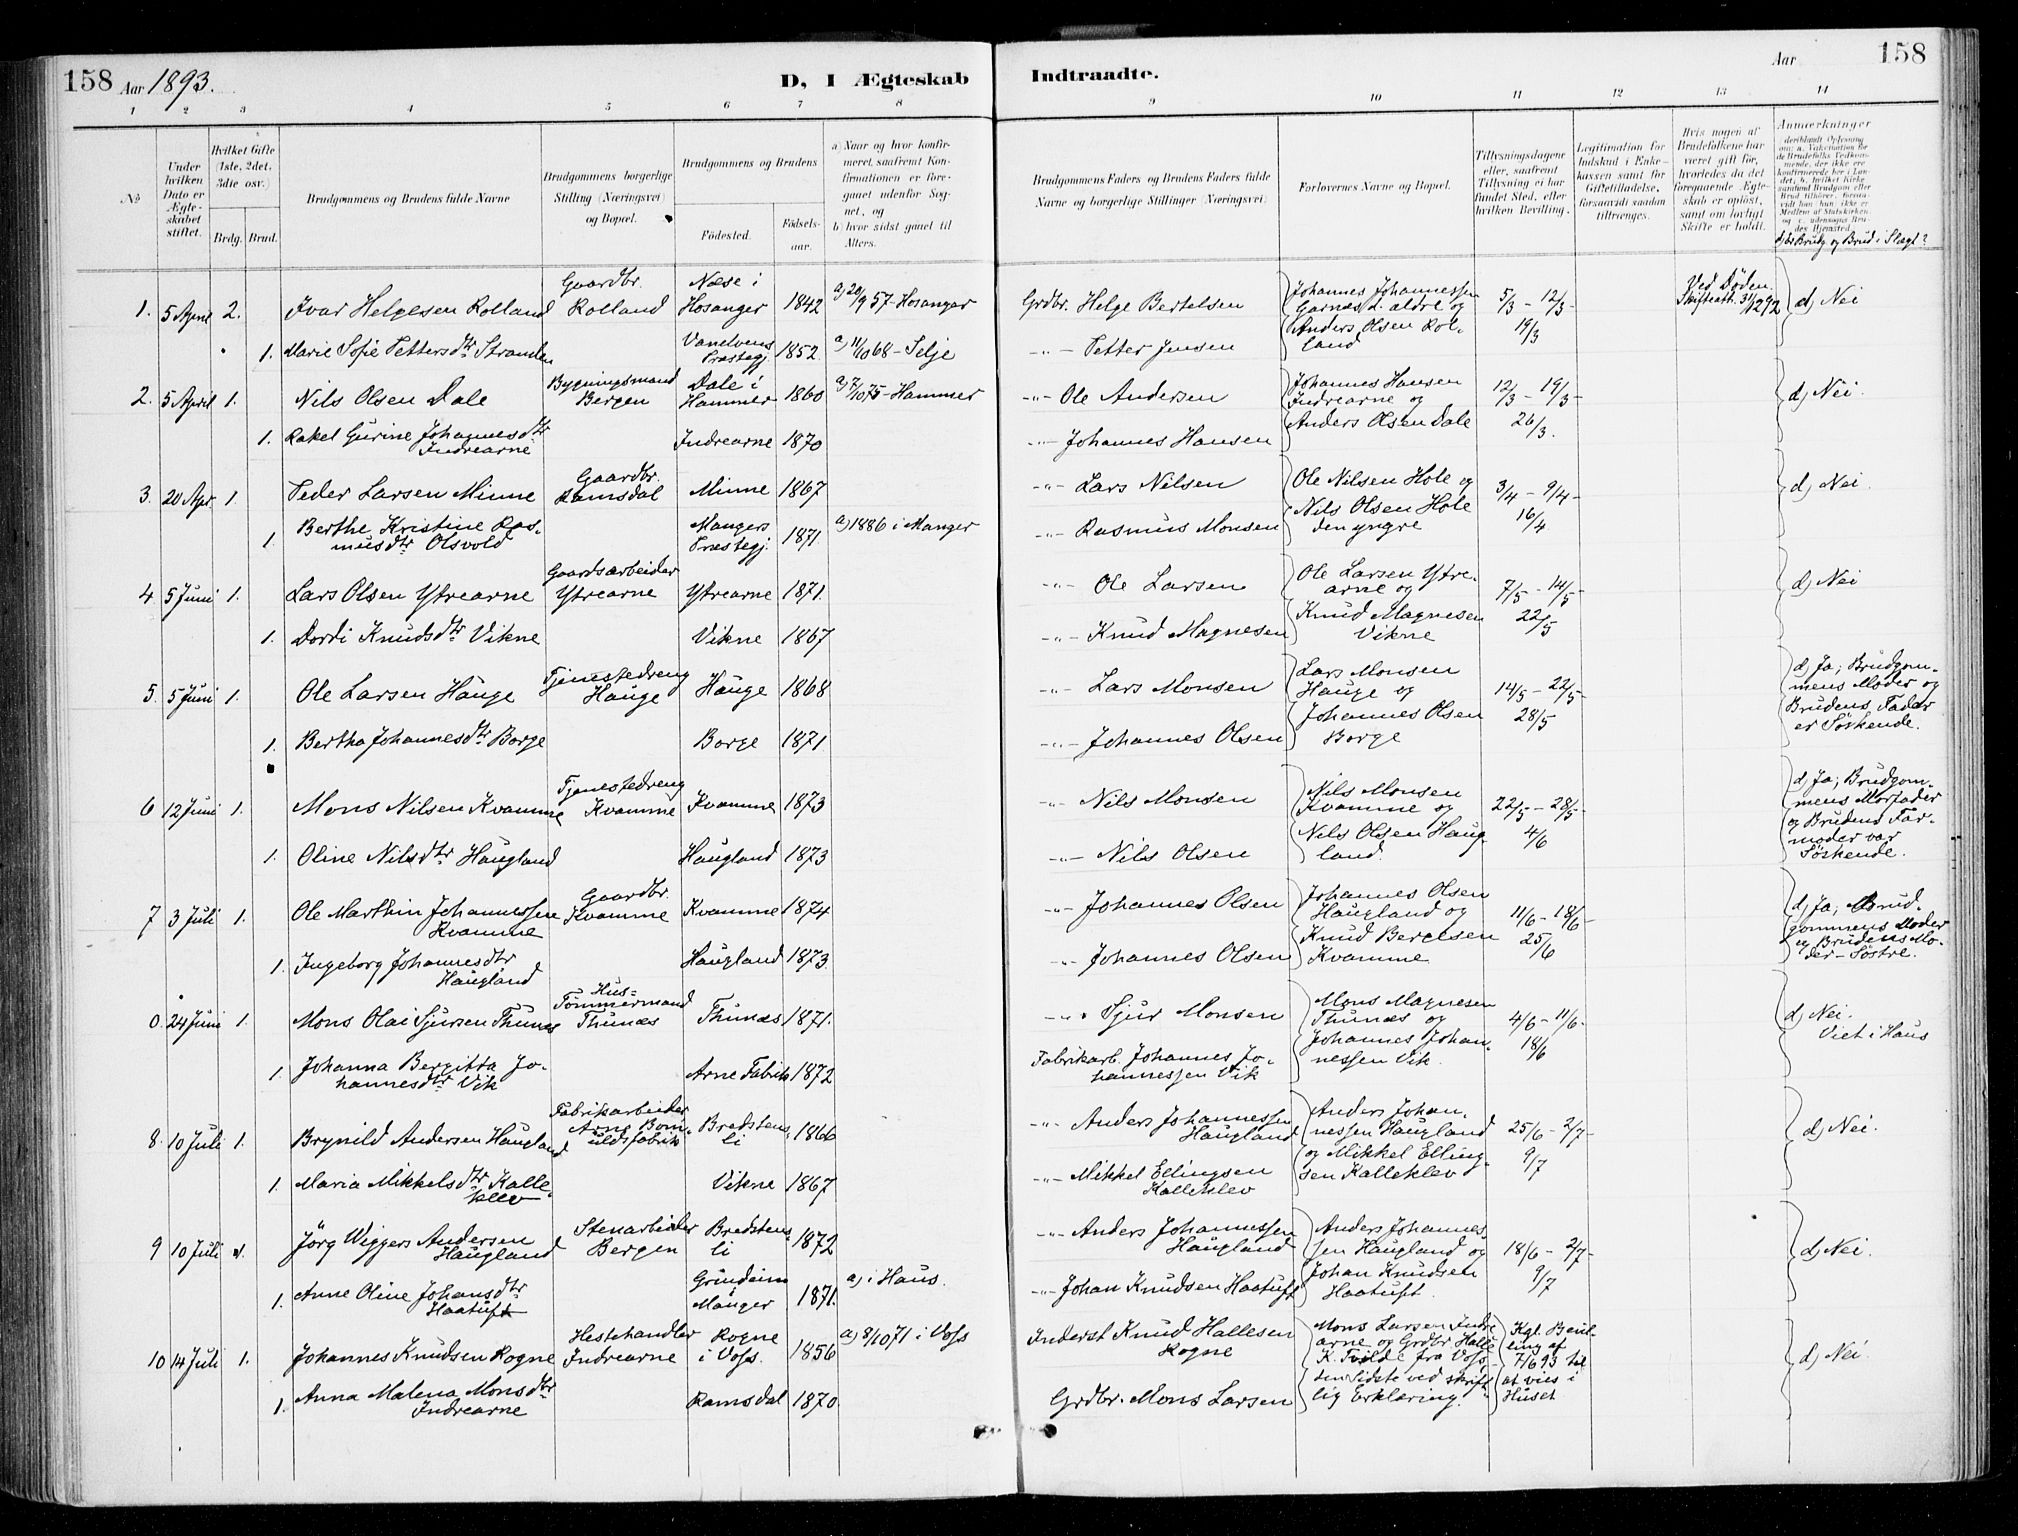 158 Aar 1893. D, I Ægteskab Indtraadte. Aar 158
1 2 3 4 5 6 7 8 9 10 11 12 13 14
No
Under hvilken Dato er Ægteskabet stiftet.
Hvilket Gifte (1ste, 2det, 3die osv.)
Brdg. Brud.
Brudgommens og Brudens fulde Navne
Brudgommens borgerlige Stilling (Næringsvei) og Bopæl.
Brudgommens og Brudens
Fødested. Fødselsaar.
a) Naar og hvor konfirmeret, saafremt Konfirmationen er foregaaet udenfor Sognet, og
b) hvor sidst gaaet til Alters.
Brudgommens Faders og Brudens Faders fulde Navne og borgerlige Stillinger (Næringsvei)
Forlovernes Navne og Bopæl.
Tillysningsdagene eller, saafremt Tillysning ei har fundet Sted, efter hvilken Bevilling.
Legitimation for Indskud i Enkekassen samt for Giftetilladelse, forsaavidt saadan tiltrænges.
Hvis nogen af Brudefolkene har været gift før, hvorledes da det foregaaende Ægteskab er opløst, samt om lovligt Skifte er holdt.
Anmærkninger
d) er Brudg. og Brud i Slægt?
1. 5 April 2. Ivar Helgesen Rolland Gaardbr. Rolland Næse i Hosanger 1842 a) 20/9 57 - Hosanger Grdbr. Helge Bertelsen Johannes Johannessen Garnæs d. ældre og Anders Olsen Rolland 5/3 - 12/3 - 19/3 Ved Døden. Skifteatt. 31/12 92 d) Nei
1. Marie Sofie Pettersdtr Stranden Vanelvens Præstegj. 1852. a) 11/10 68 - Selje -"- Petter Jensen
2. 5 April 1. Nils Olsen Dale Bygningsmand Bergen Dale i Hammer 1860 a) 7/10 75 - Hammer -"- Ole Andersen Johannes Hansen Indrearne og Anders Olsen Dale 12/3 - 19/3 - 26/3. d) Nei.
1. Rakel Gurine Johannesdtr Indrearne Indrearne 1870 -"- Johannes Hansen
3. 20 Apr. 1. Peder Larsen Minne Gaardbr. Ramsdal Minne 1867 -"- Lars Nilsen Ole Nilsen Hole og Nils Olsen Hole den yngre 3/4 - 9/4 - 16/4 d) Nei.
1. Berthe Kristine Rasmusdtr Olsvold Mangers Præstegj. 1871 a) 1886 i Manger -"- Rasmus Monsen
4. 5 Juni 1. Lars Olsen Ytrearne Gaardsarbeider Ytrearne Ytrearne 1871. -"- Ole Larsen Ole Larsen Ytrearne og Knud Magnesen Vikne 7/5 - 14/5 - 22/5 d) Nei
1. Dordi Knudsdtr Vikne Vikne 1867 -"- Knud Magnesen
5. 5 Juni 1. Ole Larsen Hauge Tjenestedreng Hauge Hauge 1868 -"- Lars Monsen Lars Monsen Hauge og Johannes Olsen Borge 14/5 - 22/5 - 28/5 d) Ja; Brudgommens Moder og Brudens Fader er Søskende.
1. Bertha Johannesdtr Borge Borge 1871 -"- Johannes Olsen
6 12 Juni 1. Mons Nilsen Kvamme Tjenestedreng Kvamme Kvamme 1873 -"- Nils Monsen Nils Monsen Kvamme og Nils Olsen Haugland. 22/5 - 28/5 - 4/6 d) Ja; Brudgommens Morfader og Brudens Farmoder var Søskende.
1. Oline Nilsdtr Haugland Haugland 1873 -"- Nils Olsen
7 3 Juli 1. Ole Marthin Johannessen Kvamme Gaardbr. Kvamme Kvamme 1874 -"- Johannes Olsen Johannes Olsen Haugland og Knud Bergesen Kvamme 11/6 - 18/6 - 25/6 d) Ja; Brudgommens Moder og Brudens Moder - Søstre.
1. Ingeborg Johannesdtr Haugland Haugland 1873. -"- Johannes Olsen
0. 24 Juni 1. Mons Olai Sjursen Thunæs Hus-Tømmermand Thunæs Thunæs 1871. -"- Sjur Monsen Mons Magnesen Thunæs og Johannes Johannessen Vik. 4/6 - 11/6 - 18/6 d) Nei. Viet i Haus
1. Johanna Bergitta Johannesdtr Vik Arne Fabrik 1872 Fabrikarb. Johannes Johannessen Vik
8. 10 Juli 1. Brynild Andersen Haugland Fabrikarbeider Arne Bomuldsfabrik Bredstensli 1866 -"- Anders Johannessen Haugland Anders Johannessen Haugland og Mikkel Ellingsen Kalleklev 25/6 - 2/7 - 9/7 d) Nei.
1. Maria Mikkelsdtr Kalleklev Vikne 1867 -"- Mikkel Ellingsen Kalleklev
9 10 Juli 1. Jörg Wiggers Andersen Haugland Stenarbeider Bergen Bredstensli 1872 -"- Anders Johannessen Haugland Anders Johannessen Haugland og Johan Knudsen Haatuft. 18/6 - 2/7 - 9/7 d) Nei.
1. Anne Oline Johansdtr Haatuft Grindeim Manger 1871. a) i Haus. -"- Johan Knudsen Haatuft
10 14 Juli 1. Johannes Knudsen Rogne Hestehandler Indrearne Rogne i Voss. 1856 a) 8/10 71 i Voss Inderst Knud Hallesen Rogne Mons Larsen Indrearne og Grdbr. Halle K. Tvilde fra Voss, den Sidste ved skriftlig Erklæring. Kgl. Bevilling af 7/6 93 til at vies i Huset d) Nei.
1. Anna Malena Monsdtr Indrearne Ramsdal 1870. Grdbr. Mons Larsen